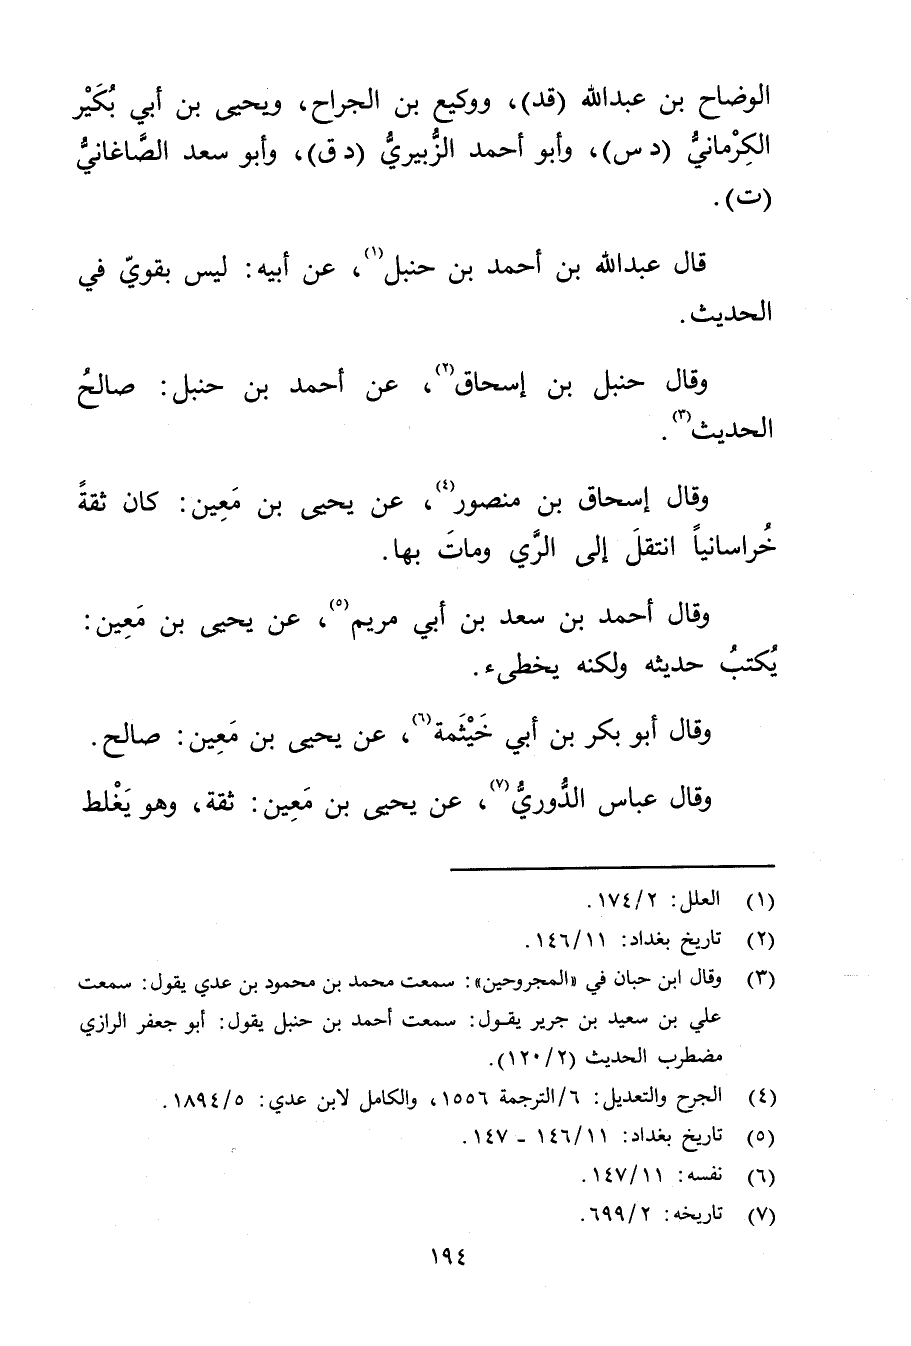 الوضاح بن عبدالله (قد)، ووكيع بن الجراح، ويحيى بن أبي بُكَيْر
الكِرْمانيُّ (د س)، وأبو أحمد الزُّبيريُّ (د ق)، وأبو سعد الصَّاغانيُّ
(ت).
قال عبدالله بن أحمد بن حنبل(١)، عن أبيه: ليس بقويّ في
الحديث.
وقال حنبل بن إسحاق(٢)، عن أحمد بن حنبل: صالحُ
الحديث(٣).
وقال إسحاق بن منصور(٤)، عن يحيى بن مَعِين: كان ثقةً
خُراسانياً انتقلَ إلى الرَّي وماتَ بها.
وقال أحمد بن سعد بن أبي مريم(٥)، عن يحيى بن مَعِين:
يُكتبُ حديثه ولكنه يخطىء.
وقال أبو بكر بن أبي خَيْثَمة(٦)، عن يحيى بن مَعِين: صالح.
وقال عباس الدُّوريُّ(٧)، عن يحيى بن مَعِين: ثقة، وهو يَغْلط
(١) العلل: ٢/١٧٤.
(٢) تاريخ بغداد: ١١/١٤٦.
(٣) وقال ابن حبان في «المجروحين»: سمعت محمد بن محمود بن عدي يقول: سمعت
علي بن سعيد بن جرير يقـول: سمعت أحمد بن حنبل يقول: أبو جعفر الرازي
مضطرب الحديث (٢/١٢٠).
(٤) الجرح والتعديل: ٦/الترجمة ١٥٥٦، والكامل لابن عدي: ٥/١٨٩٤.
(٥) تاريخ بغداد: ١١/١٤٦ - ١٤٧.
(٦) نفسه: ١١/١٤٧.
(٧) تاريخه: ٢/٦٩٩.
١٩٤